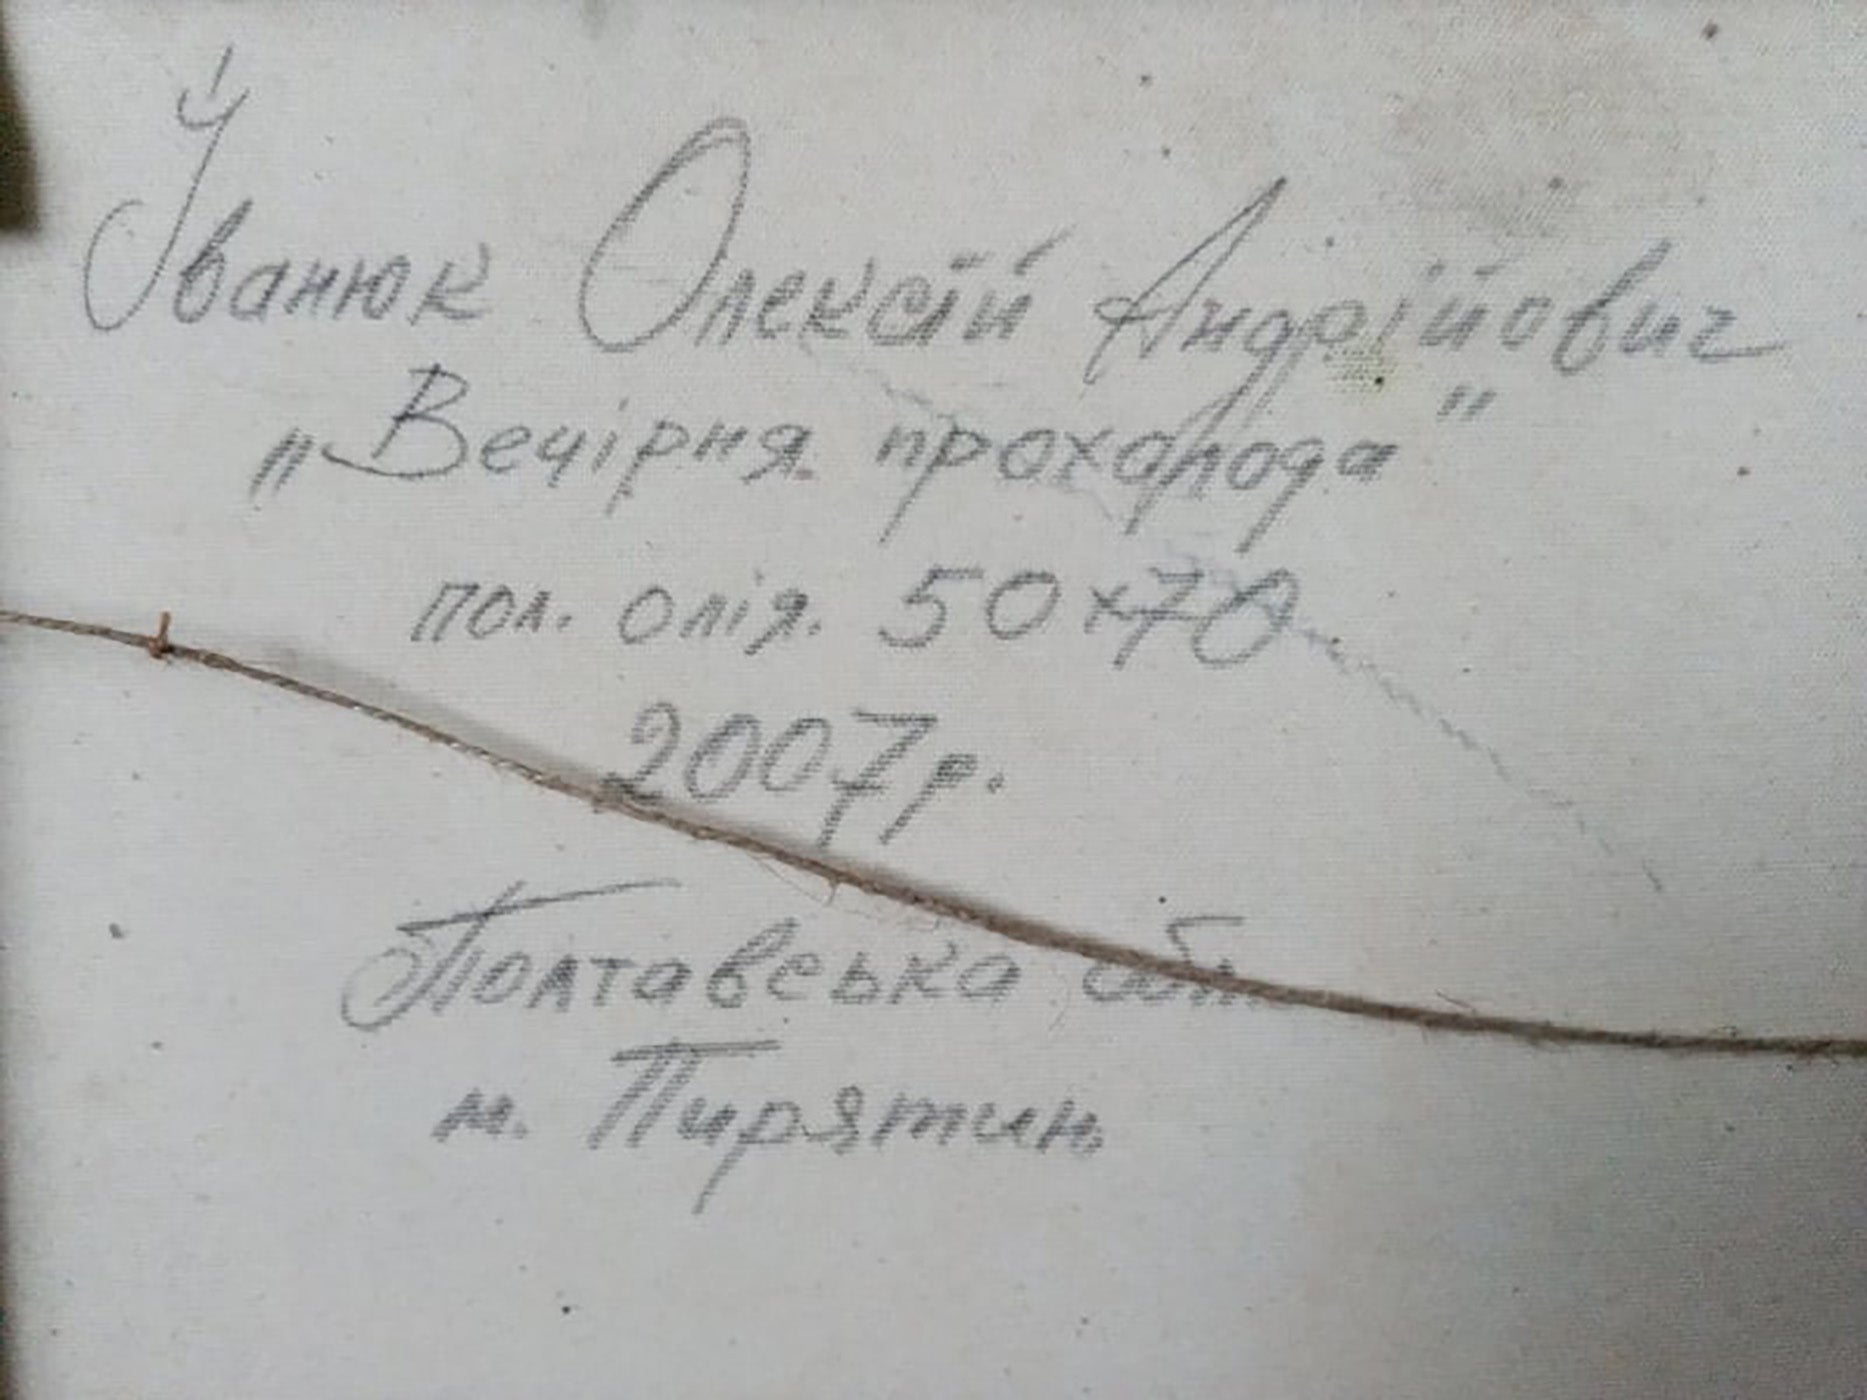 Іванюк Олексій Андрійович
„Вечірня прохолода"
пол. олія. 50х70
2007р.
Полтавська обл.
м. Пирятин